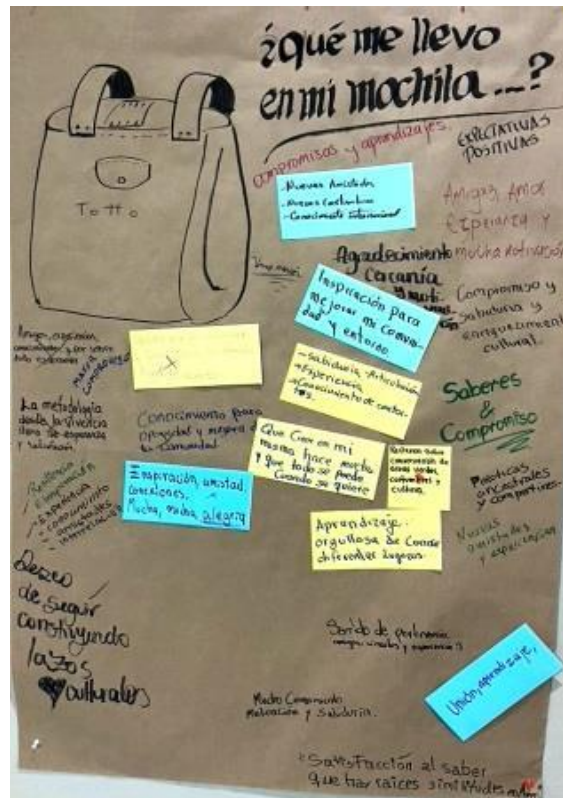 ¿qué me llevo
en mi mochila...?
Totto
compromisos y aprendizajes.
EXPECTATIVAS
POSITIVAS
- Nuevas Amistades
- Nuevas Costumbres
- Conocimiento Internacional
Amigas, Amor
Esperanza y
mucha motivación
Agradecimiento
Cercanía
Inspiración para
mejorar mi comuni-
dad y entorno
Compromiso y
sabiduría y
enriquecimiento
cultural.
- Sabiduría - Articulación
+ Experiencia
+ Conocimiento de
Saberes
&
Compromiso
La metodología
desde la vivencia
Conocimiento para
y mejora
comunidad
Que Creer en mi
misma hace mucho
y que todo se puede
Cuando se quiere
conservación de
cultura.
Prácticas
ancestrales
y compartires.
Inspiración, amistad,
conexiones.
Mucha, mucha alegría
Resiliencia
Experiencia
conocimiento
amistades
Aprendizaje.
orgullosa de Conocer
diferentes lugares.
Nuevas
amistades
y experiencias
Deseo
de seguir
construyendo
lazos
culturales
Sentido de pertenencia
Mucho Conocimiento
Motivación y Sabiduría.
Unión, aprendizaje,
Satisfacción al saber
que hay raíces similitudes